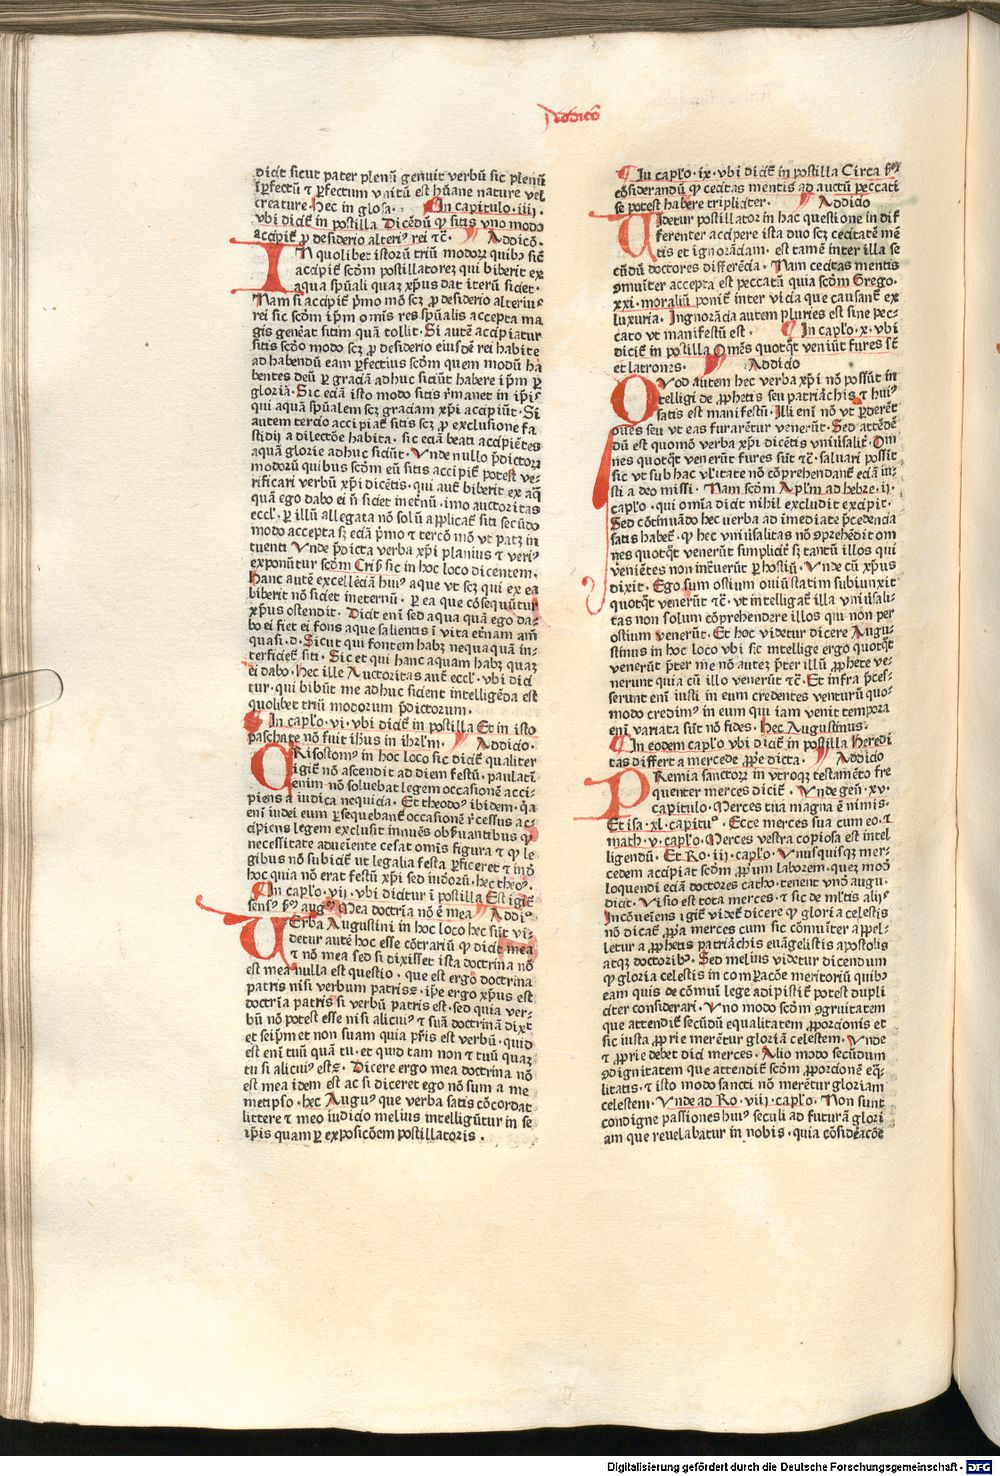 Addicō
dicit sicut pater plenū genuit verbū sic plenū
īperfectū ⁊ perfectum vnitū est hūane nature vel
creature. hec in glosa. In capitulo.iiij.
vbi dicit̄ in postilla Dicēdū ꝙ sitis vno modo
accipit̄ ꝓ desiderio alteriꝰ rei ⁊c̄. Addicō.
IN quolibet istorū triū modorꝝ quibꝰ sic̄
accipit̄ scd̄m postillatorez qui biberit ex
aqua sp̄uali quaz xp̄us dat iterū siciet.
Nam si accipit̄ pīmo mō scꝫ ꝓ desiderio alteriuꝰ
rei sic scd̄m ip̄m om̄is res sp̄ualis accepta ma
gis gen̄eat sitim quā tollit. Si autē accipiatur
sitis scd̄o modo scꝫ ꝓ desiderio eiusdē rei habite
ad habendū eam ꝑfectius scd̄m quem modū ha
bentes deū ꝑ graciā adhuc siciūt habere ip̄m ꝑ
gloriā. Sic eciā isto modo sitis rͤmanet in ip̄is
qui aquā sp̄ualem scꝫ graciam xp̄i accipiūt. Si
autem tercio accipiat̄ sitis scꝫ ꝓ exclusione fa
stidij a dilectōe habita. sic eciā beati accipiētes
aquā glorie adhuc siciūt. Vnde nullo p̄dictorꝝ
modorū quibus scd̄m eū sitis accipit̄ potest ve-
rificari verbū xp̄i dicētis. qui aut̄ biberit ex aq̄
quā ego dabo ei n̄ siciet inet̄nū. imo auctoritas
eccl̄. ꝑ illū allegata nō solū applicat̄ siti secūdo
modo accepta sꝫ eciā p̄mo ⁊ tercō mō vt patꝫ in
tuenti Vnde p̄dicta verba xp̄i planius ⁊ veriꝰ
exponūtur scd̄m Crip̄ sic in hoc loco dicentem.
Hanc autē excellēciā huiꝰ aque vt scꝫ qui ex ea
biberit nō siciet ineternū. ꝑ ea que cōsequūtur
xp̄us ostendit. Dicit enī sed aqua quā ego da-
bo ei fiet ei fons aque salientis ī vita et̄nam am̄
quasi.d. Sicut qui fontem habꝫ nequaquā in-
terficiet̄ siti. Sic et qui hanc aquam habꝫ quaꝫ
ei dabo. hec ille Auctoritas aut̄ eccl̄. vbi dici
tur. qui bibūt me adhuc sicient intelligēda est
quolibet triū modorum p̄dictorum.
In capl̄o.vi. vbi dicit̄ in postilla Et in isto
paschate nō fuit ih̄us in ih̄rl̄m. Addicio.
CRisostomꝰ in hoc loco sic dicit̄ qualiter
igit̄ nō ascendit ad diem festū. paulatī
enim nō soluebat legem occasionē acci-
piens a iudica nequicia. Et theodoꝰ ibidem. q̄a
enī iudei eum ꝑsequebant̄ occasionē rͤcessus ac-
cipiens legem exclusit innuēs obp̄uantibus ꝙ
necessitate adueiente cesat om̄is figura ⁊ ꝙ le
gibus nō subicit̄ ut legalia festa ꝑficeret ⁊ imō
hoc quia nō erat festū xp̄i sed iudeorū. hec theoꝰ.
In capl̄o.vij. vbi dicitur ī postilla Est igit̄
sensꝰ pꝰ augꝰ Mea doctrīa nō ē mea Addiᵒ
VErba Augustini in hoc loco hec sūt vi-
detur autē hoc esse cōtrariū ꝙ dicit mea
⁊ nō mea sed si dixisset ista doctrina nō
est mea nulla est questio. que est ergo doctrina
patris nisi verbum patris. ip̄e ergo xp̄us est
doctrīa patris si verbū patris est. sed quia ver-
bū nō potest esse nisi alicuiꝰ ⁊ suā doctrinā dixt̄
et seip̄m et non suam quia pr̄is est verbū. quid
est enī tuū quā tu. et quid tam non ⁊ tuū quaꝫ
tu si alicuiꝰ est. Dicere ergo mea doctrina nō
est mea idem est ac si diceret ego nō sum a me
metipso. hec Auguꝰ que verba satis cōcordat
littere ⁊ meo iudicio melius intelligūtur in se
ip̄is quam ꝑ exposicōem postillatoris.
In capl̄o.ix. vbi dicit̄ in postilla Circa
cōsiderandū ꝙ cecitas mentis ad auctū peccati
se potest habere tripliciter. Addicio
VIdetur postillatoꝝ in hac questione in dif
ferenter accipere ista duo scꝫ cecitatē mē
tis et ignorāciam. est tamē inter illa se
cūdū doctores differēcia. Nam cecitas mentis
ꝯmuiter accepta est peccatū quia scd̄m Grego.
xxi. moraliū ponit̄ inter vicia que causant̄ ex
luxuria. Ingnorācia autem pluries est sine pec-
cato vt manifestū est. In capl̄o.x. vbi
dicit̄ in postilla Om̄es quotq̄t veniūt fures st̄
et latrones. Addicio
QVod autem hec verba xp̄i nō possūt in
telligi de ꝓphetis seu patriāchis ⁊ huiꝰ
satis est manifestū. Illi enī nō vt ꝑderēt
oues seu vt eas furarētur venerūt. Sed attēdē
dū est quomō verba xp̄i dicētis vniūsalit̄. Om
nes quotq̄t venerūt fures sūt ⁊c̄. saluari possit
sic vt sub hac vl̄itate nō cōprehendant̄ eciā iu-
sti a deo missi. Nam scd̄m Apl̄m ad hebre.ij.
capl̄o. qui om̄ia dicit nihil excludit excipit.
Sed cōtinuādo hec verba ad imediate p̄cedencia
satis habet̄. ꝙ hec vniūsalitas nō ꝯprehēdit om
nes quotq̄t venerūt simplicit̄ sꝫ tantū illos qui
veniētes non intͣuerūt ꝑ hostiū. Vnde cū xp̄us
dixit. Ego sum ostium ouiū statim subiunxit
quotq̄t venerūt ⁊c̄. vt intelligat̄ illa vniūsali-
tas non solum cōprehendere illos qui non per
ostium venerūt. Et hoc videtur dicere Augu-
stinus in hoc loco vbi sic intellige ergo quotq̄t
venerūt p̄ter me nō autez p̄ter illū ꝓphete ve-
nerunt quia cū illo venerūt ⁊c̄. Et infra p̄ces-
serunt enī iusti in eum credentes venturū quo-
modo credimꝰ in eum qui iam venit tempora
enī variata sūt nō fides. hec Augustinus.
In eodem capl̄o vbi dicit̄ in postilla heredi
tas differt a mercede ꝓp̄e dicta. Addicio
PRemia sanctorꝝ in vtroqꝫ testamēto fre
quenter merces dicit̄. Vnde gen̄.xv.
capitulo. Merces tua magna ē nimis.
Et isa.xl. capituᵒ. Ecce merces sua cum eo. ⁊
math.v. capl̄o. Merces vestra copiosa est intel
ligendū. Et Ro.iij. capl̄o. Vnusquisqꝫ mer-
cedem accipiat scd̄m ꝓp̄um laborem. quez modū
loquendi eciā doctores catho. tenent vnō augu.
dicit. Visio est tota merces. ⁊ sic de ml̄tis alijs
Incōueiens igit̄ videt̄ dicere ꝙ gloria celestis
nō dicat̄ ꝓp̄a merces cum sic cōmuīter appel-
letur a ꝓphetis patriāchis euāgelistis apostolis
atqꝫ doctoribꝰ. Sed melius videtur dicendum
ꝙ gloria celestis in compacōe meritoriū quibꝰ
eam quis de cōmuī lege adipiscit̄ potest dupli
citer considerari. Vno modo scd̄m ꝯgruitatem
que attendit̄ secūdū equalitatem ꝓporcionis et
sic iusta ꝓprie merētur gloriā celestem. Vnde
⁊ ꝓprie debet dici merces. Alio modo secūdum
ꝯdignitatem que attendit̄ scd̄m ꝓporcionē eq̄-
litatis. ⁊ isto modo sancti nō merētur gloriam
celestem. Vnde ad Ro.viij. capl̄o. Non sunt
condigne passiones huiꝰ seculi ad futurā glori
am que reuelabatur in nobis. quia cōsideācōe
Digitalisierung gefördert durch die Deutsche Forschungsgemeinschaft - DFG